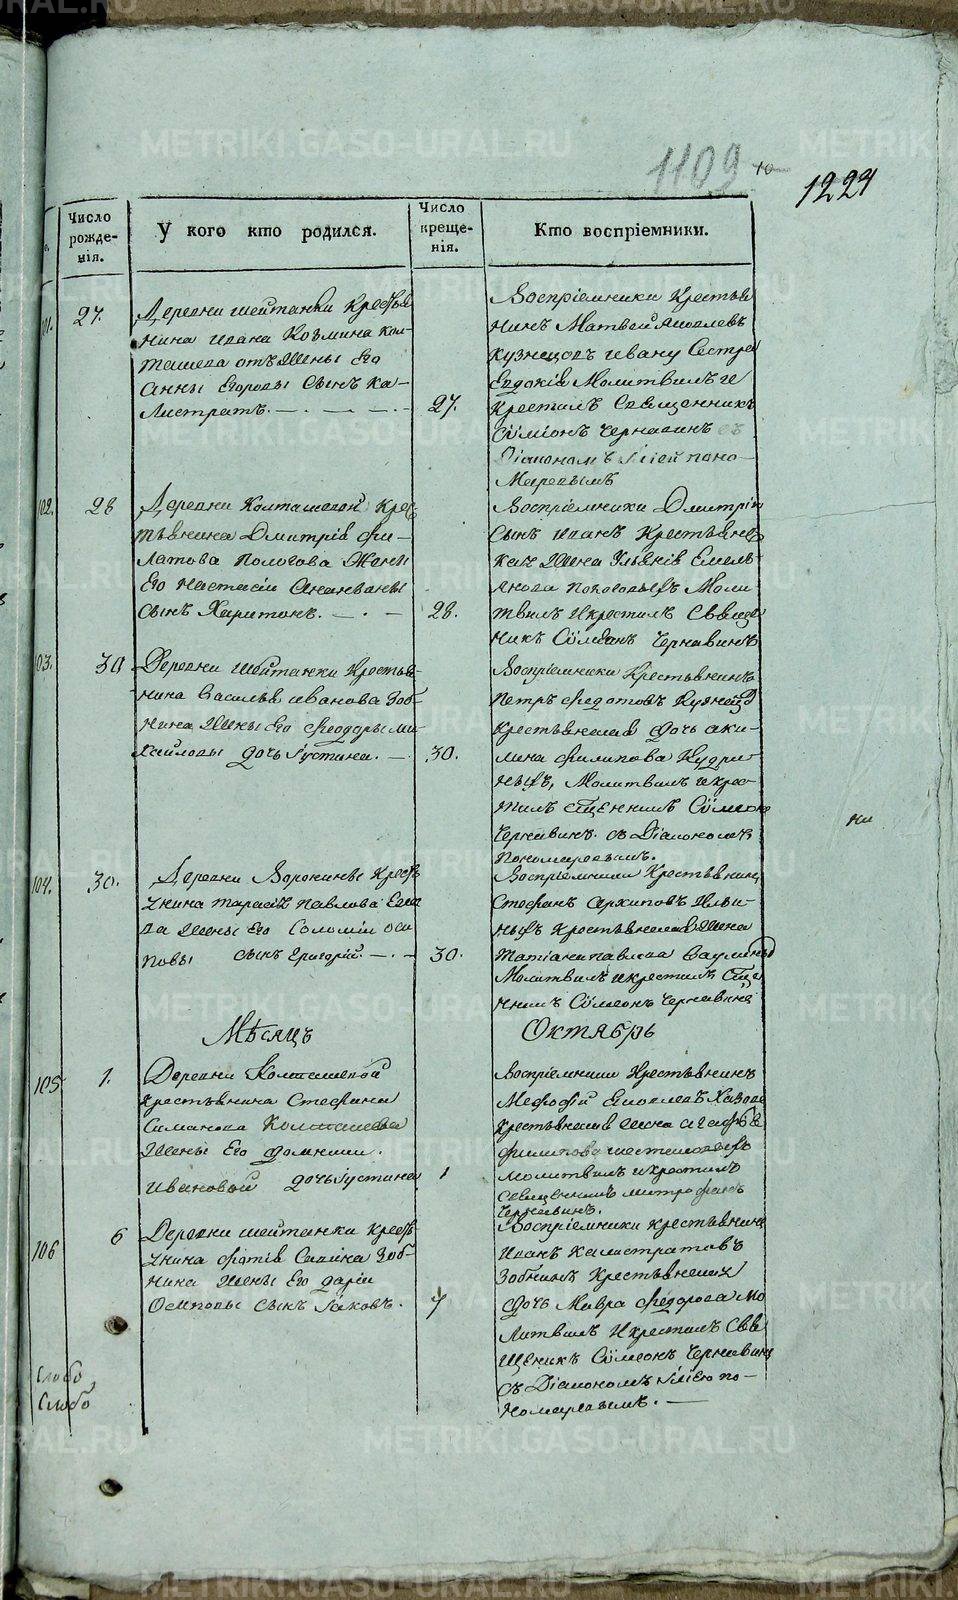 1109
10
1224
Число рожде-нія.
У кого кто родился.
Число креще-нія.
Кто воспріемники.
101.
27.
Деревни шейтанки Крестья
нина ивана Козмина кол
ташева отъ Жены Его
Анны Егоровы Сынъ Ка-
листратъ.
27.
Воспріемники Крестья
нинъ Матвей Яковлевъ
Кузнецовъ ивану Сестра
Евдокія Молитвилъ и
Крестилъ Священникъ
Сѵмеонъ Чернавинъ съ
Діакономъ Иліей поно-
Маревымъ
102.
28
Деревни Колташевой Крес
тьянина Дмитрія фи-
латова Пологова Жены
Его Настасіи Ананьины
Сынъ Харитонъ.
28.
Воспріемники Дмитрія
Сынъ иванъ Крестьянс
кая Жена Ульянія Емель
янова Моли
твилъ и крестилъ Свяще
никъ Сѵмеонъ Чернавинъ
103.
30
Деревни Шейтанки Крестья
нина Василья иванова Зоб-
нина Жены Его Феодоры ми-
хайловы дочь Іустина.
30.
Воспріемники Крестьянинъ
Петръ Федотовъ Кузнецо
Крестьянская Дочь аки-
лина Филипова Кудри-
ныхъ, Молитвилъ и крес-
тилъ сщенникъ Сѵмеонъ
Чернавинъ. съ Діакономъ
Пономаревымъ.
104.
30.
Деревни Воронины Кресть
янина тарасія Павлова Ваг
ва Жены Его Соломіи оси
повы сынъ Григорій.
30.
Воспріемники Крестьянинъ
Стефанъ Архиповъ Ильи-
ныхъ Крестьянская Жена
Татіана павлова
Молитвилъ и крестилъ Сще
нникъ Сѵмеонъ Чернавинъ
Мѣсяцъ
Октябрь
105
1.
Деревни Колташевой
Крестьянина Стефана
Симанова Колташева
Жены Его Домники.
Ивановой дочь Іустина
1
Воспріемники Крестьянинъ
Мефодій
Крестьянская Жена агафья
филипова
молитвилъ и крестилъ
священникъ митрофанъ
Чернавинъ.
106
6
Деревни шейтанки Кресть
янина Фотія Савина Зоб-
нина Жены Его Даріи
Осиповы сынъ Іаковъ.
7
Воспріемники крестьянинъ
Иванъ Калистратовъ
Зобнинъ Крестьянская
Дочь Мавра Федорова Мо
литвилъ и крестилъ Свя
щеникъ Сѵмеонъ Чернавинъ
съ Діакономъ Иліею по-
номаревымъ.
ни
Слобо
Слобо
METRIKI.GASO-URAL.RU